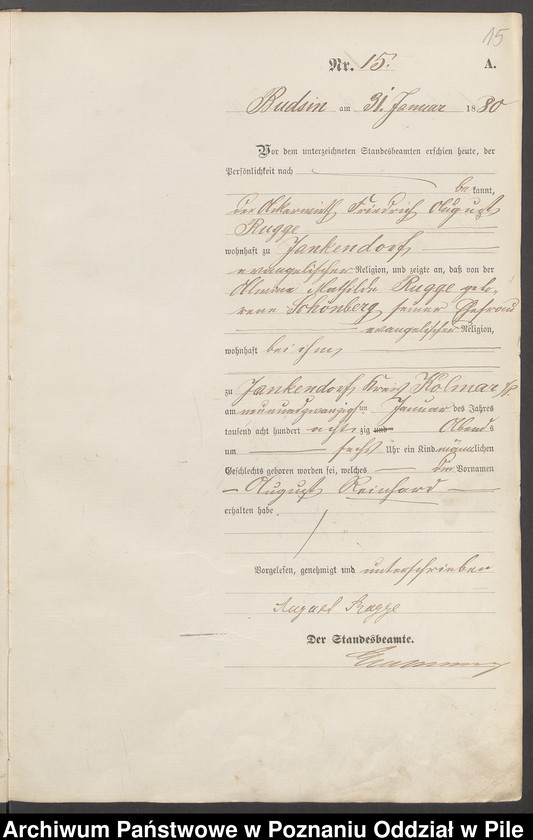 15
Nr. 15. A.
Budsin am 31. Januar 1880
Vor dem unterzeichneten Standesbeamten erschien heute, der
Persönlichkeit nach
bekannt,
der Ackerwirth Friedrich August
Rugge
wohnhaft zu Jankendorf
evangelischer Religion, und zeigte an, daß von der
Mathilde Rugge gebo-
rene Schönberg seiner Ehefrau
evangelischer Religion,
wohnhaft bei ihm
zu Jankendorf Kreis Kolmar
am neunundzwanzigsten Januar des Jahres
tausend acht hundert achtzig und Abends
um sechs Uhr ein Kind männlichen
Geschlechts geboren worden sei, welches die Vornamen
August Reinhard
erhalten habe
Vorgelesen, genehmigt und unterschrieben
August Rugge
Der Standesbeamte.
Archiwum Państwowe w Poznaniu Oddział w Pile